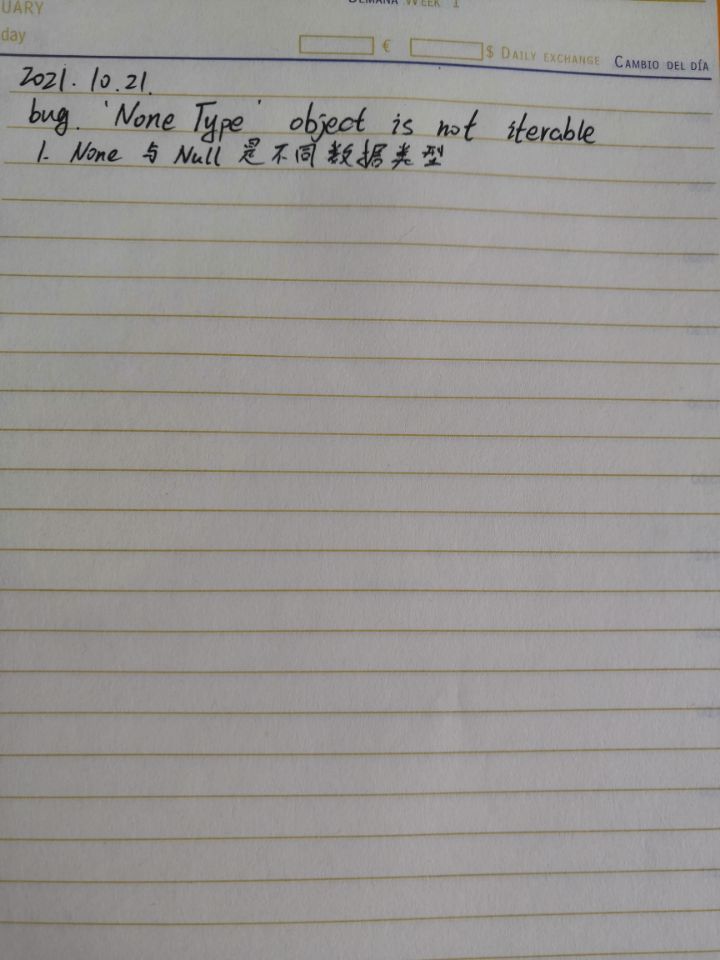 UARY
SEMANA WEEK 1
day
€ $ DAILY EXCHANGE CAMBIO DEL DÍA
2021.10.21.
bug. 'None Type' object is not iterable
1. None 与 Null 是不同数据类型